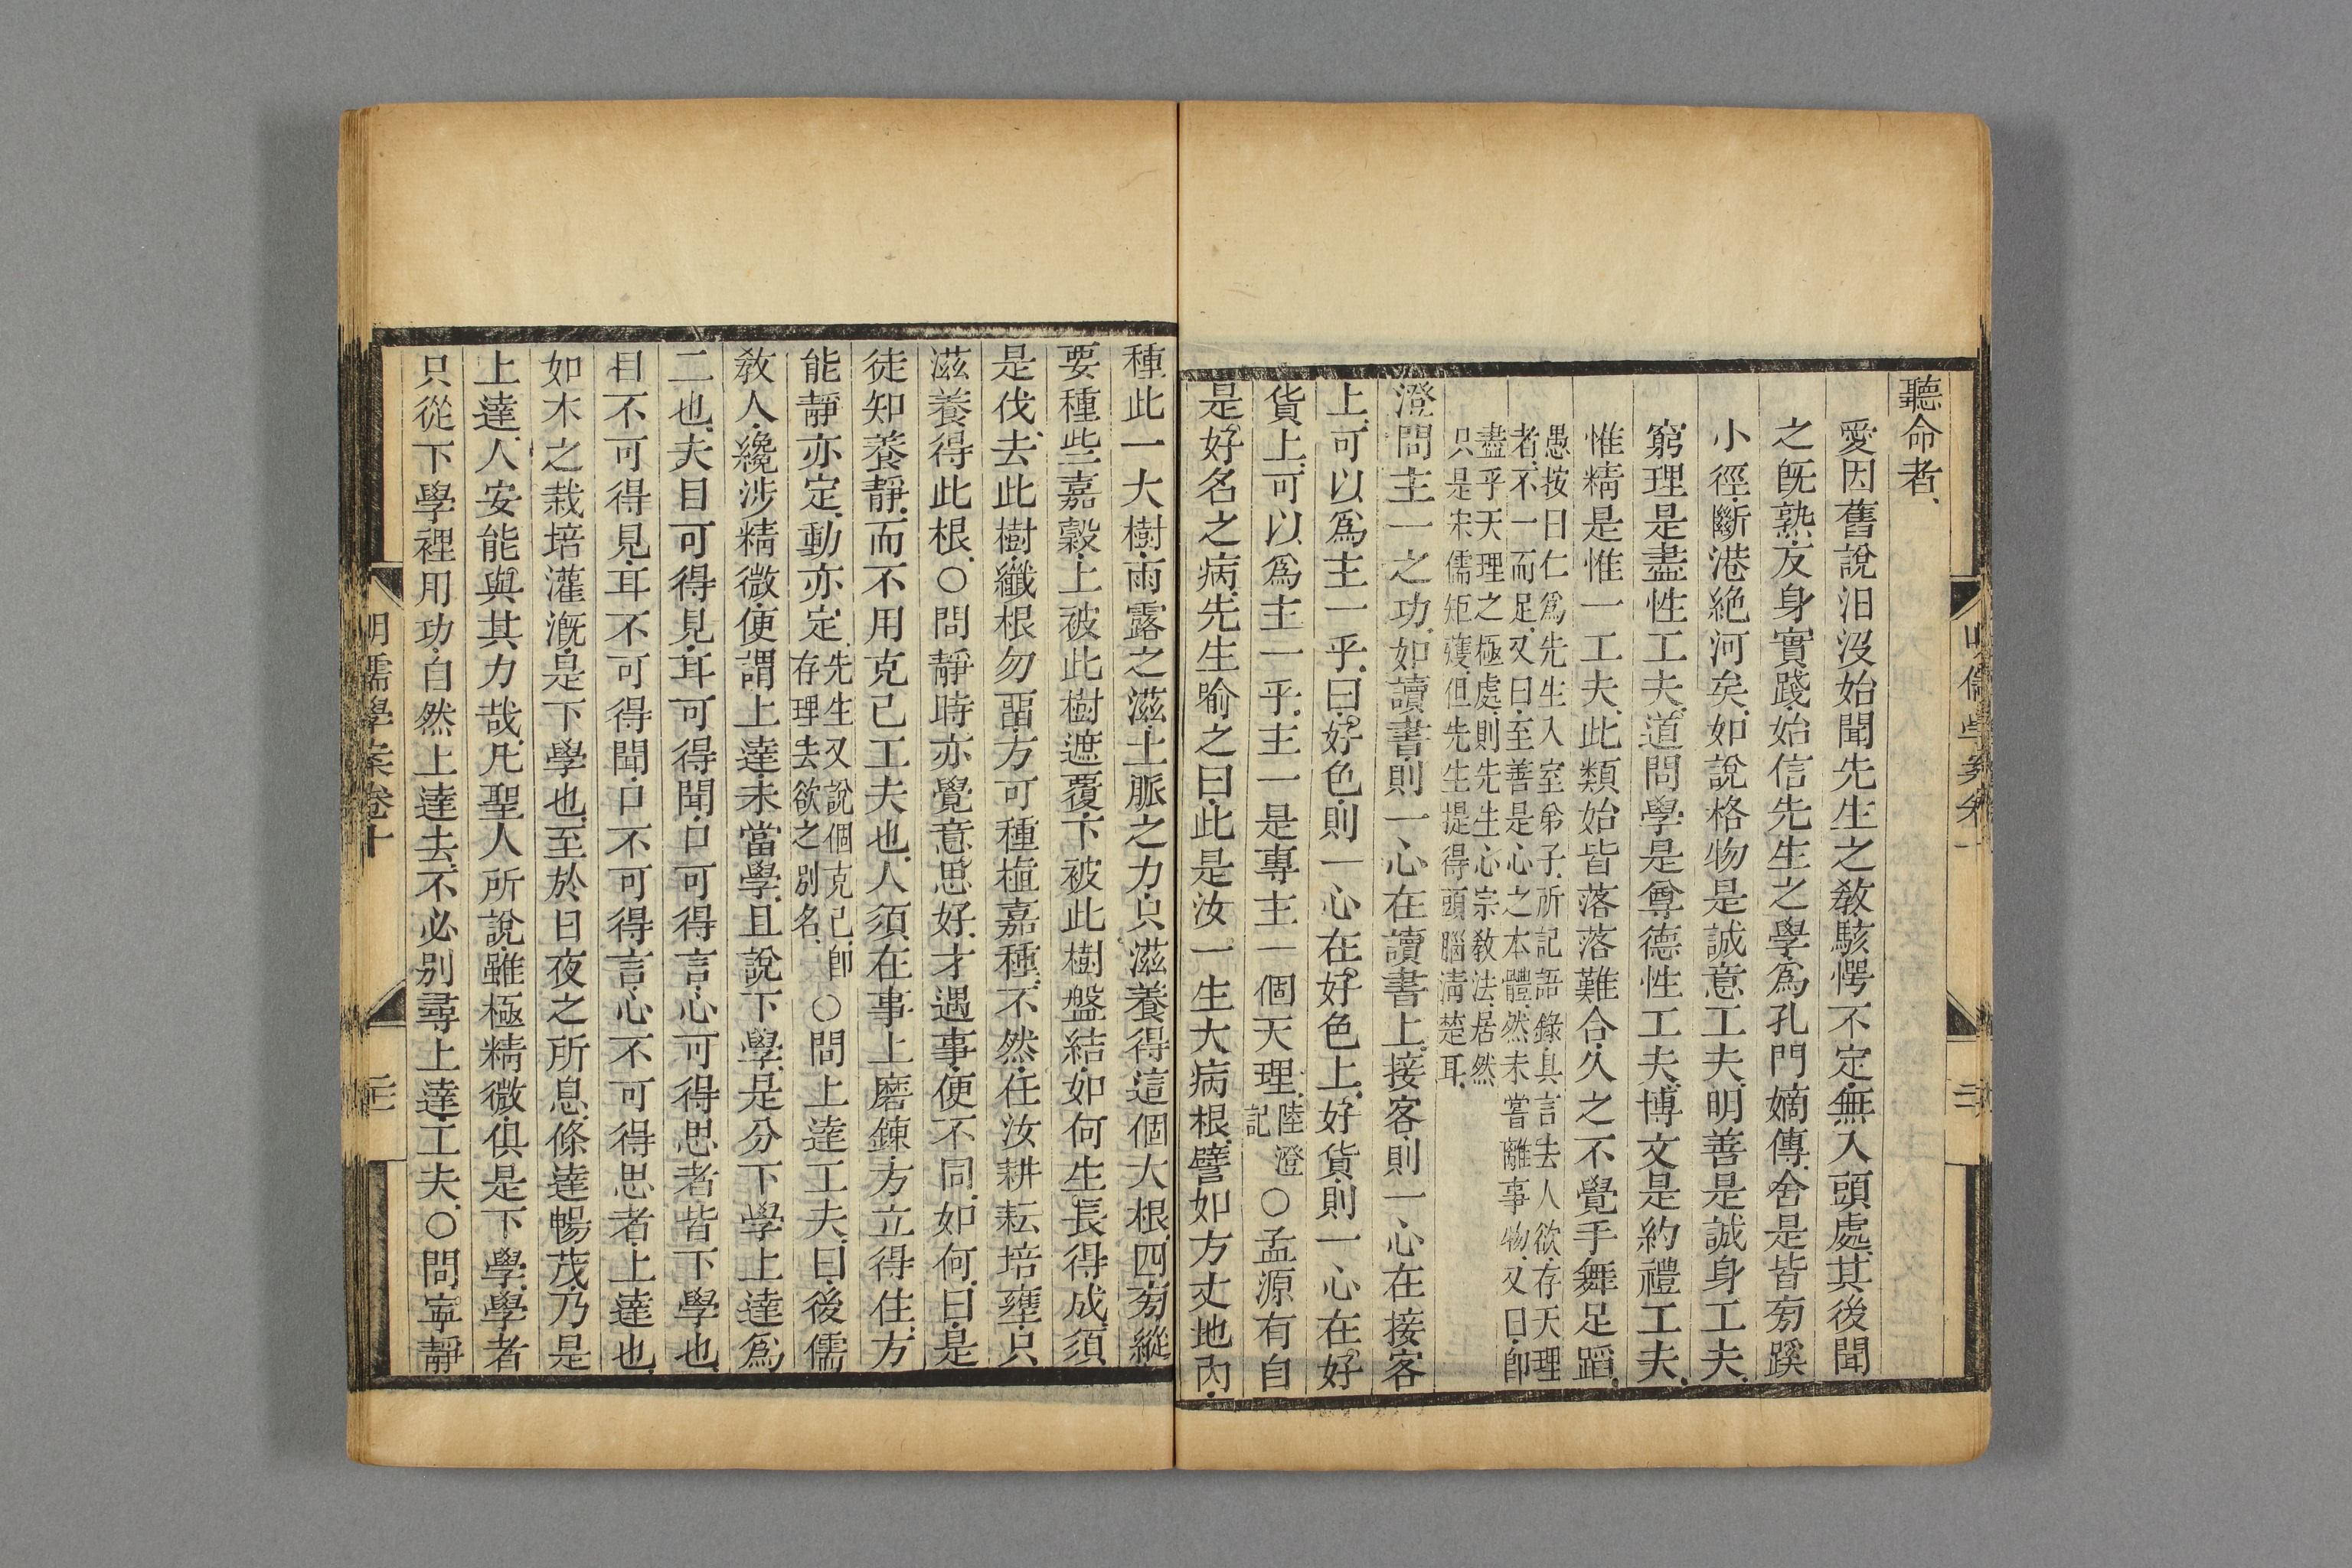 聽命者、
愛因舊說汨沒始聞先生之敎駭愕不定無入頭處其後聞
之旣熟反身實踐始信先生之學爲孔門嫡傳舍是皆旁蹊
小徑斷港絕河矣如說格物是誠意工夫明善是誠身工夫
窮理是盡性工夫道問學是尊德性工夫博文是約禮工夫
惟精是惟一工夫此類始皆落落難合久之不覺手舞足蹈
愚按曰仁爲先生入室弟子所記語錄具言去人欲存天理
者不一而足又曰至善是心之本體然未嘗離事物又曰卽
盡乎天理之極處則先生心宗敎法居然
只是宋儒矩矱但先生提得頭腦淸楚耳
澄問主一之功如讀書則一心在讀書上接客則一心在接客
上可以爲主一乎曰好色則一心在好色上好貨則一心在好
貨上可以爲主一乎主一是專主一個天理陸澄記○孟源有自
是好名之病先生喻之曰此是汝一生大病根譬如方丈地內
種此一大樹雨露之滋土脈之力只滋養得這個大根四旁縱
要種些嘉穀上被此樹遮覆下被此樹盤結如何生長得成須
是伐去此樹纖根勿畱方可種植嘉種不然任汝耕耘培壅只
滋養得此根○問靜時亦覺意思好才遇事便不同如何曰是
徒知養靜而不用克己工夫也人須在事上磨鍊方立得住方
能靜亦定動亦定先生又說個克己卽存理去欲之別名○問上達工夫曰後儒
敎人纔涉精微便謂上達未當學且說下學是分下學上達爲
二也夫目可得見耳可得聞口可得言心可得思者皆下學也
目不可得見耳不可得聞口不可得言心不可得思者上達也
如木之栽培灌漑是下學也至於日夜之所息條達暢茂乃是
上達人安能與其力哉凡聖人所說雖極精微俱是下學學者
只從下學裡用功自然上達去不必別尋上達工夫○問寧靜
明儒學案卷十